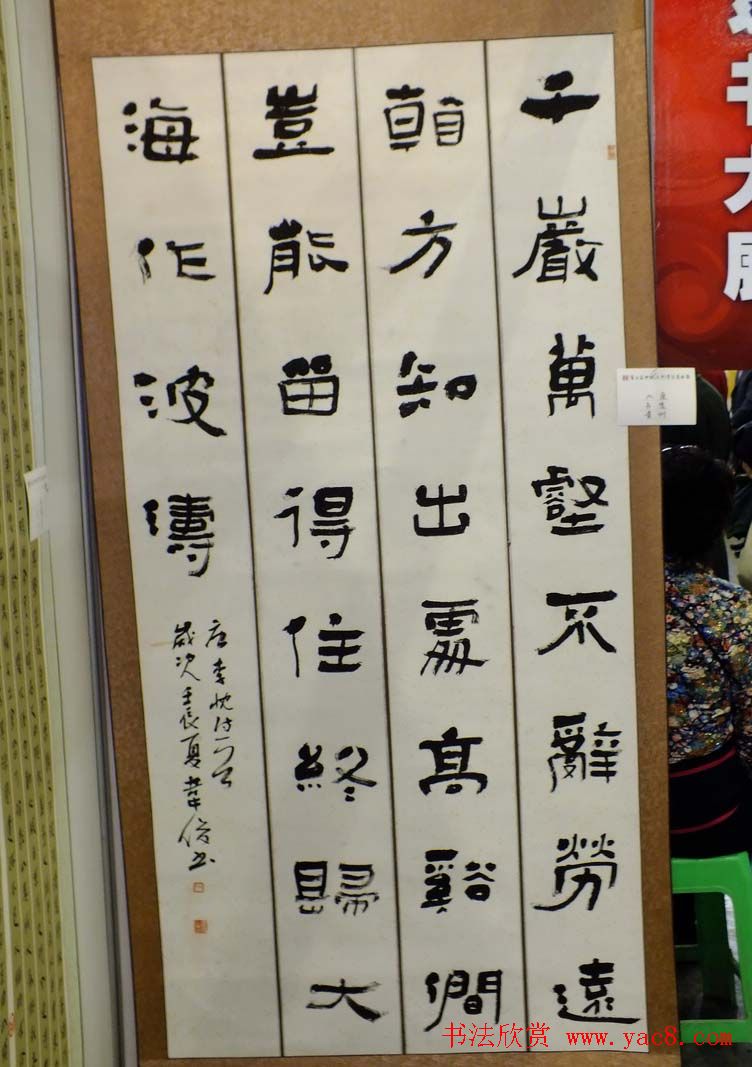 千巖萬壑不辭勞遠
方知出處高谿澗
豈能留得住終歸大
海作波濤
唐李忱诗一首
歲次壬辰夏韋俊书
书大
书法欣赏 www.yac8.com